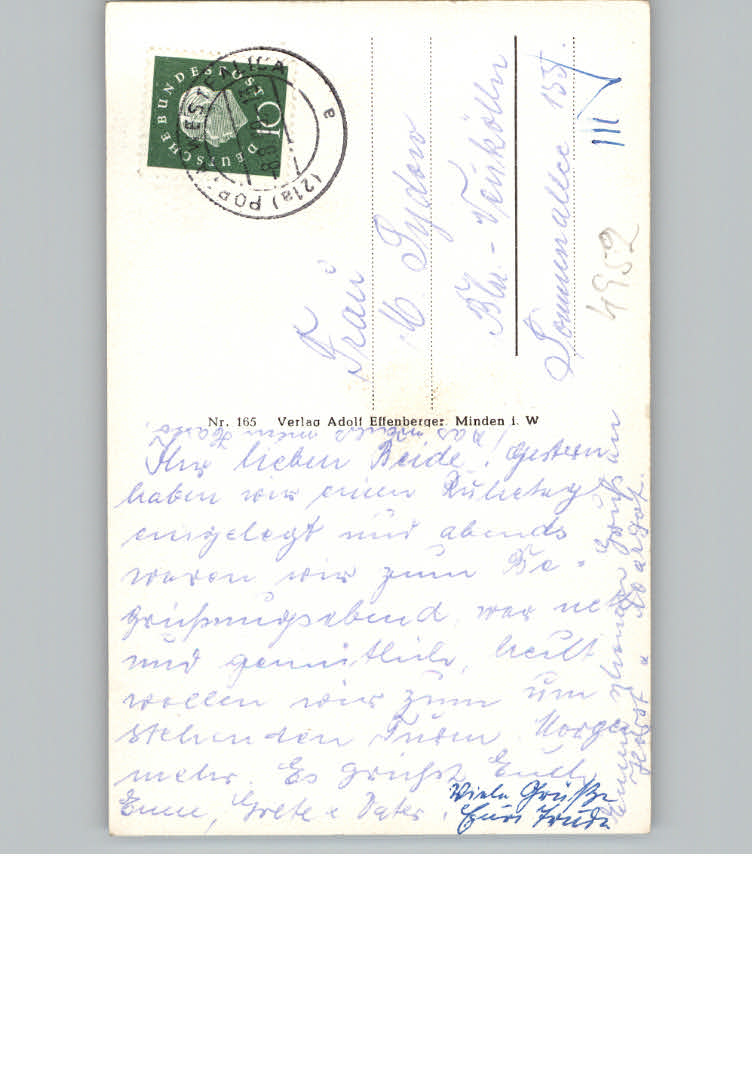 DEUTSCHE BUNDESPOST
10
(21a) PORTA WESTFALICA
a
Frau
M. Sydow
Bln.-Neukölln
Sonnenallee 155
III
4952
Nr. 165 Verlag Adolf Effenberger, Minden i. W
Ihr lieben Beide! Gestern
haben wir einen Ruhetag
eingelegt und abends
waren wir zum Be-
grüßungsabend, war nett
und gemütlich, heut
wollen wir zum um
stehenden Turm. Morgen
mehr. Es grüßt Euch
Eure Grete u Vater.
Viele Grüße
Eure Trude
Gruß an
Horst u Margot.